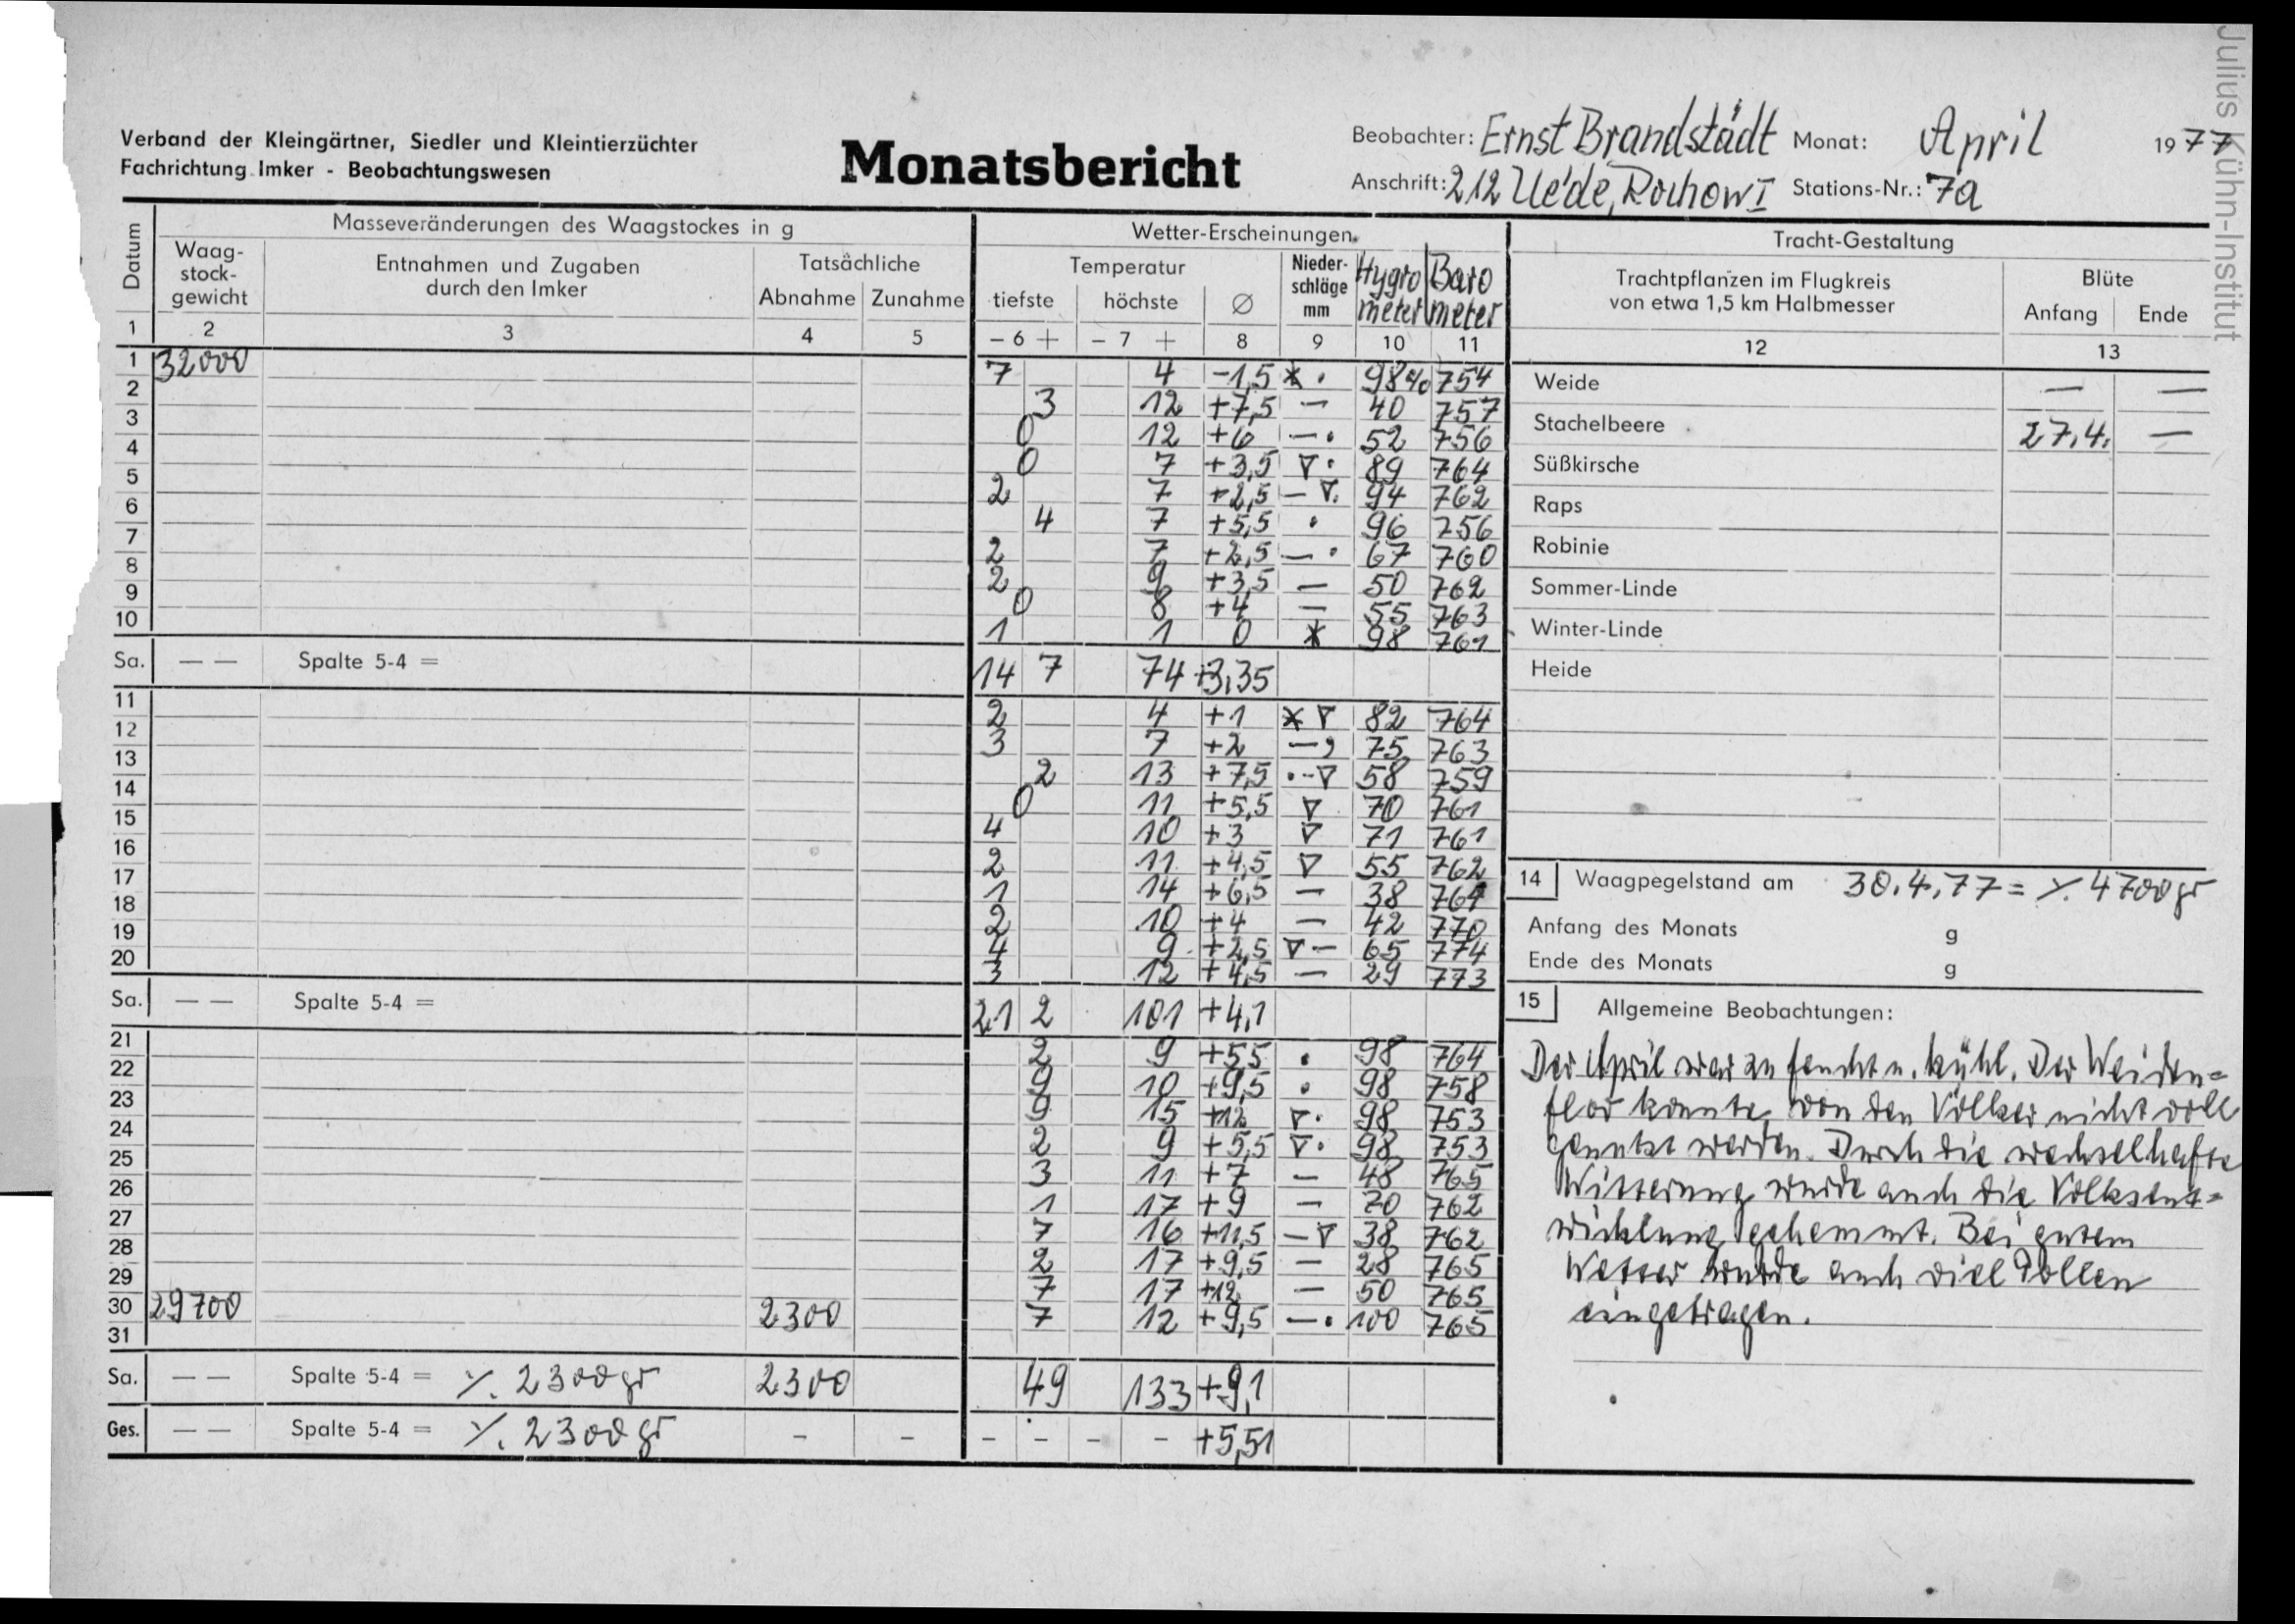 Verband der Kleingärtner, Siedler und Kleintierzüchter
Fachrichtung Imker - Beobachtungswesen
Monatsbericht
Beobachter: Ernst Brandstädt Monat: April 1977
Anschrift: 212 Ue'de, Rochow I Stations-Nr.: 7a
Julius Kühn-Institut
Datum
Masseveränderungen des Waagstockes in g
Waag-stock-gewicht
Entnahmen und Zugaben durch den Imker
Tatsächliche
Abnahme Zunahme
Wetter-Erscheinungen
Temperatur
tiefste höchste Ø
Nieder-schläge mm
Hygro meter
Baro meter
Tracht-Gestaltung
Trachtpflanzen im Flugkreis von etwa 1,5 km Halbmesser
Blüte
Anfang Ende
1 2 3 4 5 – 6 + – 7 + 8 9 10 11 12 13
1 32000 7 4 -1,5 * . 98% 754
2 3 12 +7,5 — 40 757
3 0 12 +6 — . 52 756
4 0 7 +3,5 ∇ . 89 764
5 2 7 +2,5 — ∇. 94 762
6 4 7 +5,5 . 96 756
7 2 7 +2,5 — . 67 760
8 2 9 +3,5 — 50 762
9 0 8 +4 — 55 763
10 1 1 0 * 98 761
Sa. — — Spalte 5-4 = 14 7 74 +3,35
11 2 4 +1 * ∇ 82 764
12 3 7 +2 — , 75 763
13 2 13 +7,5 . - ∇ 58 759
14 0 11 +5,5 ∇ 70 761
15 4 10 +3 ∇ 71 761
16 2 11 +4,5 ∇ 55 762
17 1 14 +6,5 — 38
18 2 10 +4 — 42 770
19 4 9 +2,5 ∇ — 65 774
20 3 12 +4,5 — 29 773
Sa. — — Spalte 5-4 = 21 2 101 +4,1
21 2 9 +5,5 . 98 764
22 9 10 +9,5 . 98 758
23 9 15 +12 ∇ . 98 753
24 2 9 +5,5 ∇ . 98 753
25 3 11 +7 — 48 765
26 1 17 +9 — 70 762
27 7 16 +11,5 — ∇ 38 762
28 2 17 +9,5 — 28 765
29 7 17 +12 — 50 765
30 29700 2300 7 12 +9,5 — . 100 765
31
Sa. — — Spalte 5-4 = ·/. 2300 gr 2300 49 133 +9,1
Ges. — — Spalte 5-4 = ·/. 2300 gr – – – – – – +5,51
Weide — —
Stachelbeere 27.4. —
Süßkirsche
Raps
Robinie
Sommer-Linde
Winter-Linde
Heide
14 Waagpegelstand am 30.4.77 = ·/. 4700 gr
Anfang des Monats g
Ende des Monats g
15 Allgemeine Beobachtungen:
Der April war zu feucht u. kühl. Der Weiden=
flor konnte von den Völker nicht voll
genutzt werden. Durch die wechselhafte
Witterung wurde auch die Volksent=
wicklung gehemmt. Bei gutem
Wetter wurde auch viel Pollen
eingetragen.